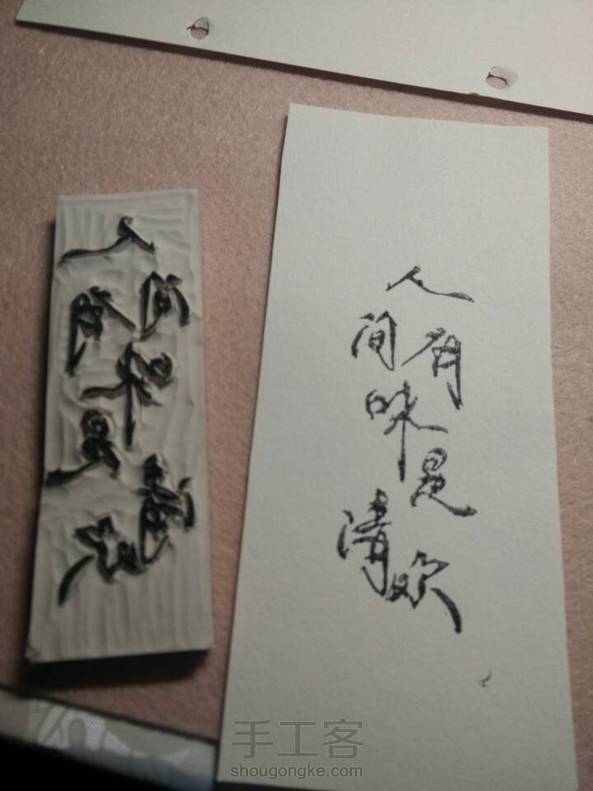 人间有味是清欢
人间有味是清欢
手工客
shougongke.com